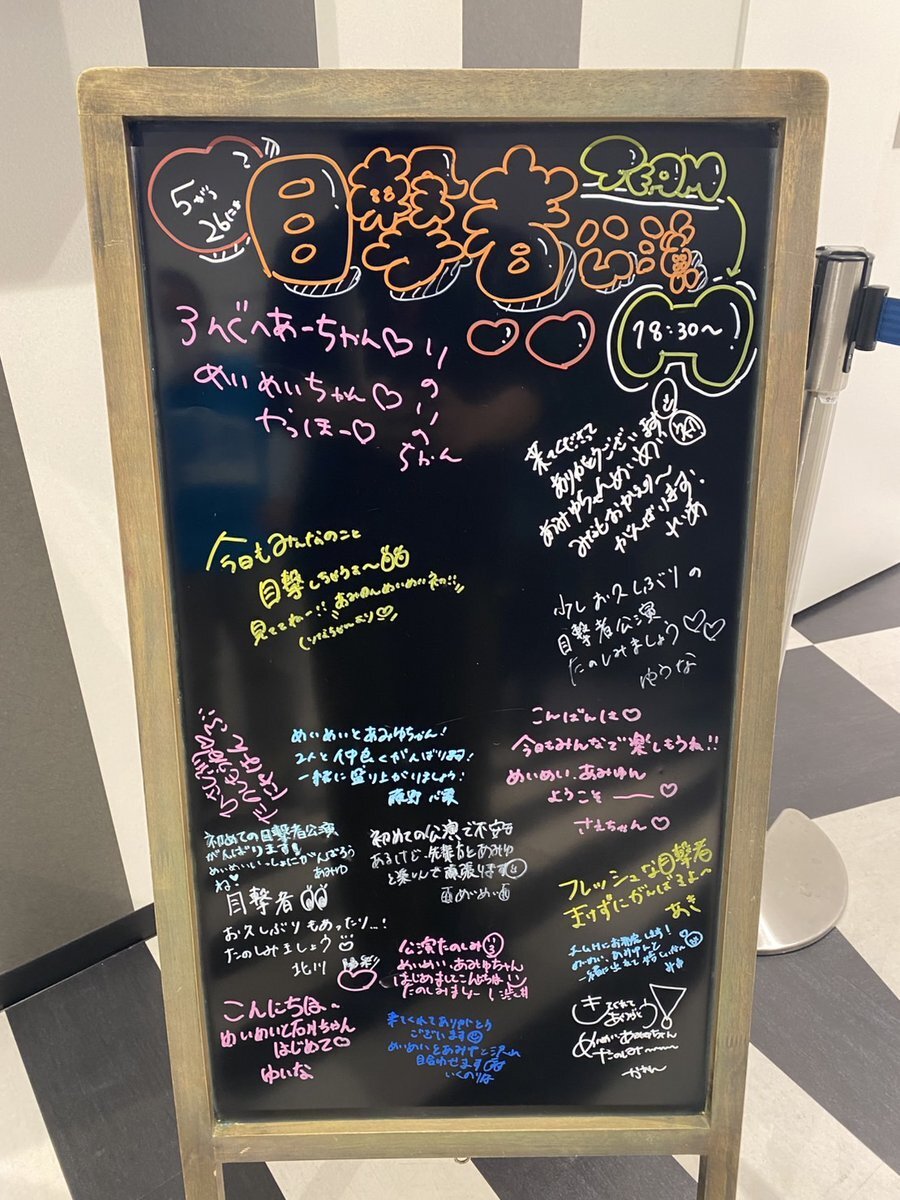 5がつ
26にち
目撃者公演
TEAM
18:30~
ろんぐへあーちゃん♡
めいめいちゃん♡
やっほー♡
りのりの
ちかん
来てくださって
ありがとうござい
あみゆちゃんめいめい
おかえり〜
がんばります.
今日もみんなのこと
目撃しちゃうぞ〜
見ててねー!! あみのんめいめい初!!
少しお久しぶりの
目撃者公演
たのしみましょう♡♡
ゆうな
めいめいとあみゆちゃん!
2人と仲良くがんばります!
一緒に盛り上がりましょう!
藤野 心葉
こんばんは♡
今日もみんなで楽しもうね!!
めいめい、あみゆん
ようこそ ー ♡
さえちゃん♡
初めての目撃者公演
がんばります!
めいめいいっしょにがんばろう
ね♡ あみゆ
初めての公演で不安も
あるけど、先輩方とあみゆ
と楽しんで頑張ります
めいめい
フレッシュな目撃者
まけずにがんばるよ〜
あき
目撃者
お久しぶりもあったり...!
たのしみましょう
北川 陽彩
公演たのしみ
めいめい、あみゆちゃん
はじめましてこんばんは
たのしみましょー
一緒に出れて嬉しいな
きてくれて
ありがとう!
めいめいあみゆちゃん
たのしみ〜
かれん
こんにちは〜
めいめいと石川ちゃん
はじめて♡
ゆいな
来てくれてありがとう
ございます
めいめいとあみゆと沢山
目合わせます
いくのりな